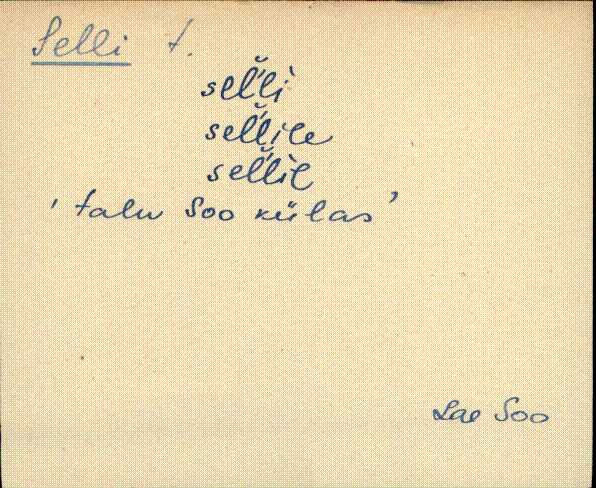 Selli t.
sel̆'l̀i
sel̆'l̀ile
sel̆'l̀il
'talu Soo külas'
Lae Soo